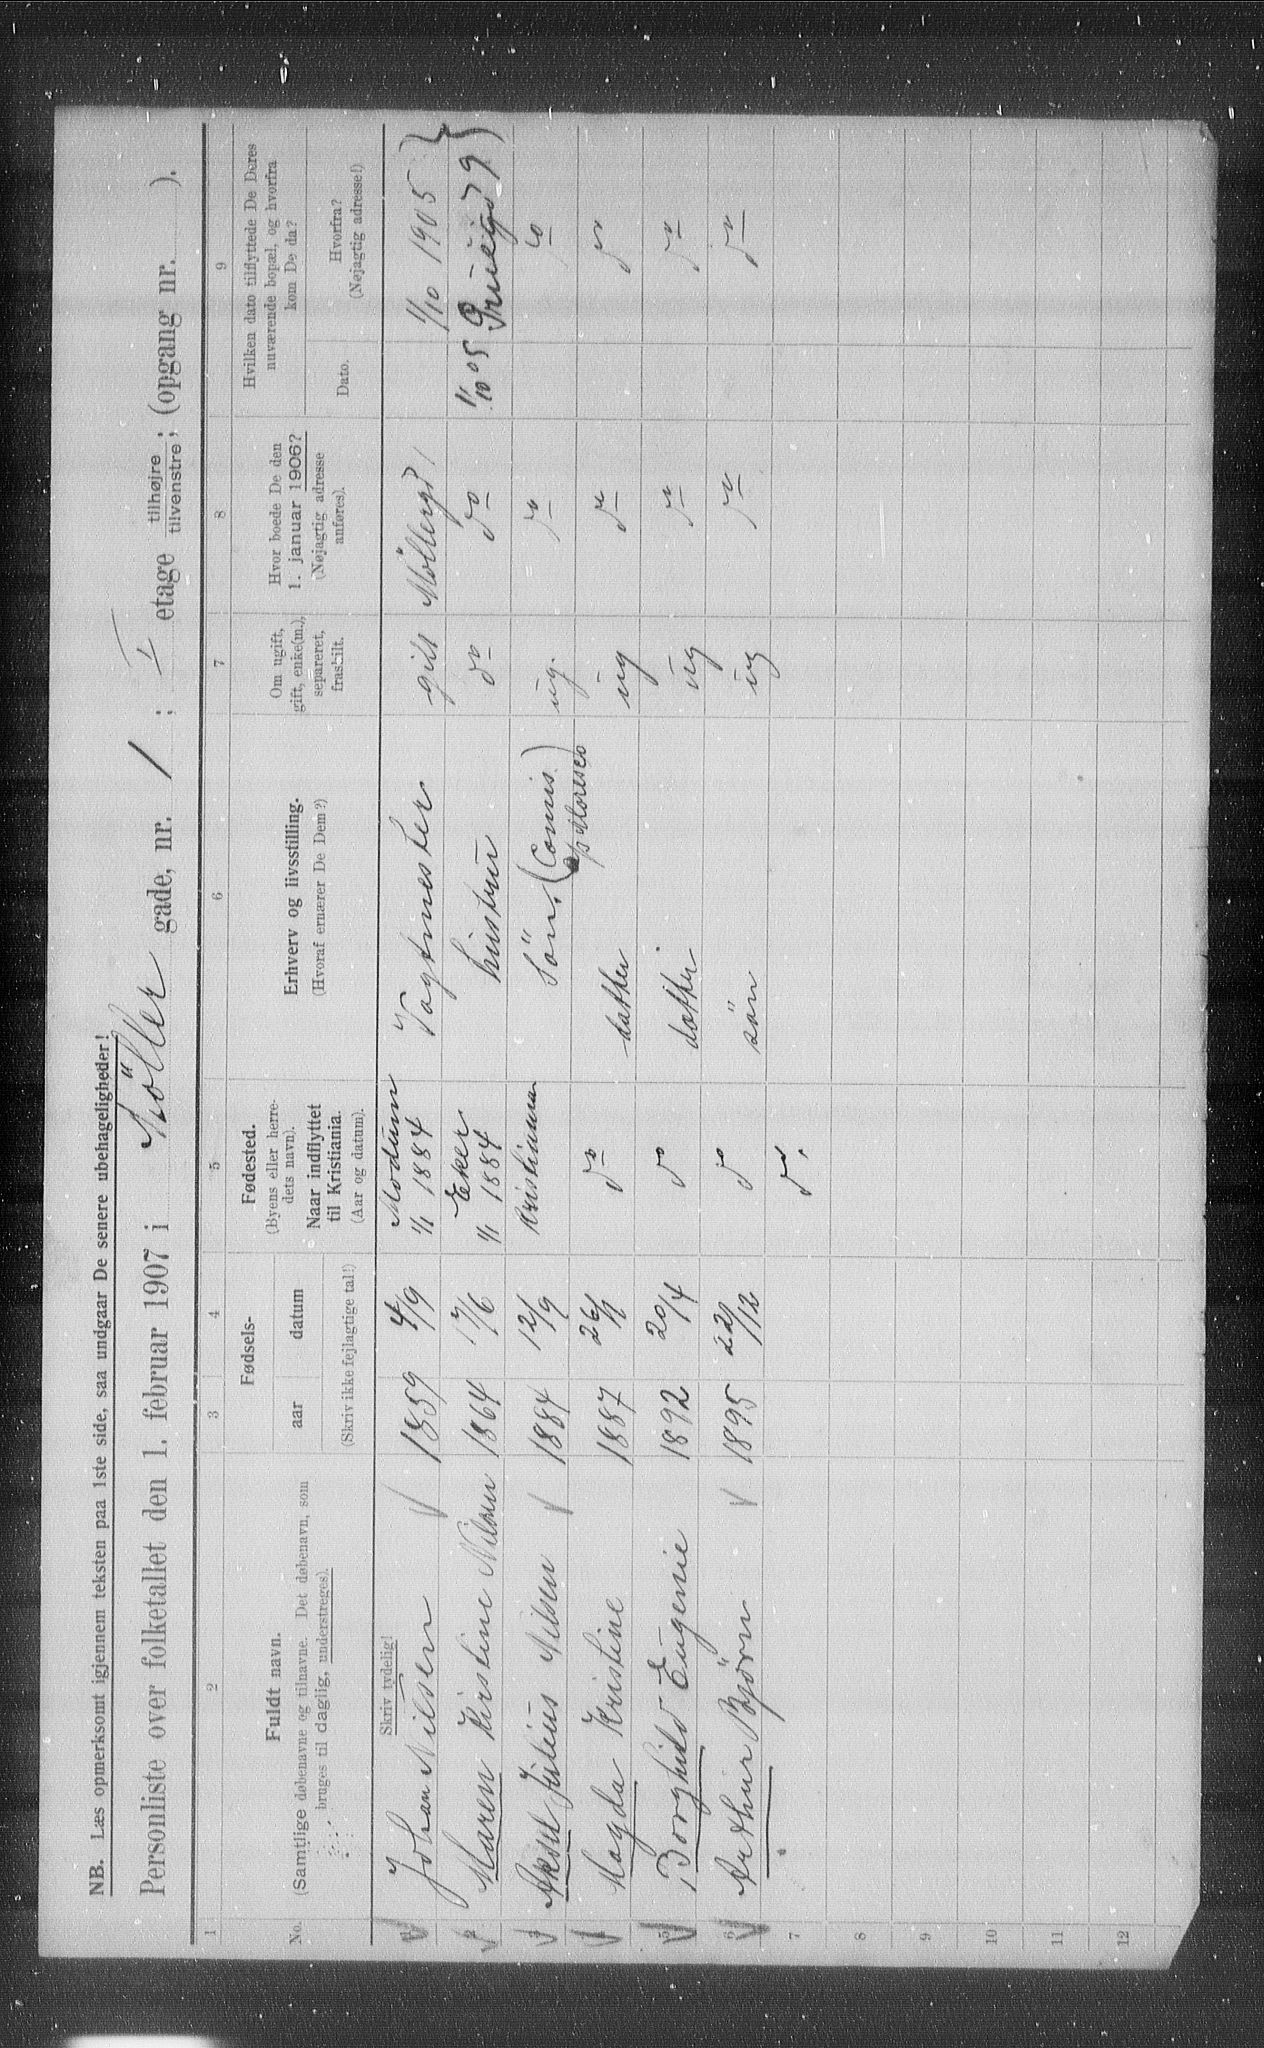 NB. Læs opmerksomt igjennem teksten paa 1ste side, saa undgaar De senere ubehageligheder!
Personliste over folketallet den 1. februar 1907 i Möller gade, nr. 1 ; I etage tilhøjre tilvenstre; (opgang nr. ).
1 2 3 4 5 6 7 8 9
No.
Fuldt navn.
(Samtlige døbenavne og tilnavne. Det døbenavn, som
bruges til daglig, understreges).
Fødsels-
aar datum
(Skriv ikke fejlagtige tal!)
Fødested.
(Byens eller herre-
dets navn).
Naar indflyttet
til Kristiania.
(Aar og datum).
Erhverv og livsstilling.
(Hvoraf ernærer De Dem?)
Om ugift,
gift, enke(m.),
separeret,
fraskilt.
Hvor boede De den
1. januar 1906?
(Nøjagtig adresse
anføres).
Hvilken dato tilflyttede De Deres
nuværende bopæl, og hvorfra
kom De da?
Dato.
Hvorfra?
(Nøjagtig adresse!)
Skriv tydelig!
1 Johan Nilsen 1859 4/9 Modum 1/1 1884 Vagtmester gift Möllergd 1 1/10 1905
2 Maren Kirstine Nilsen 1864 17/6 Eker 1/1 1884 hustru do 1/10 05 9
3 Aksel Julius Nilsen 1884 12/9 Kristiania Sön. (Comis) ug. do do
4 Magda Kristine 1887 26/1 do datter ug do do
5 Borghild Eugenie 1892 20/4 do datter ug do do
6 Arthur Björn 1895 22/12 do sön ug do do
7 do
8
9
10
11
12